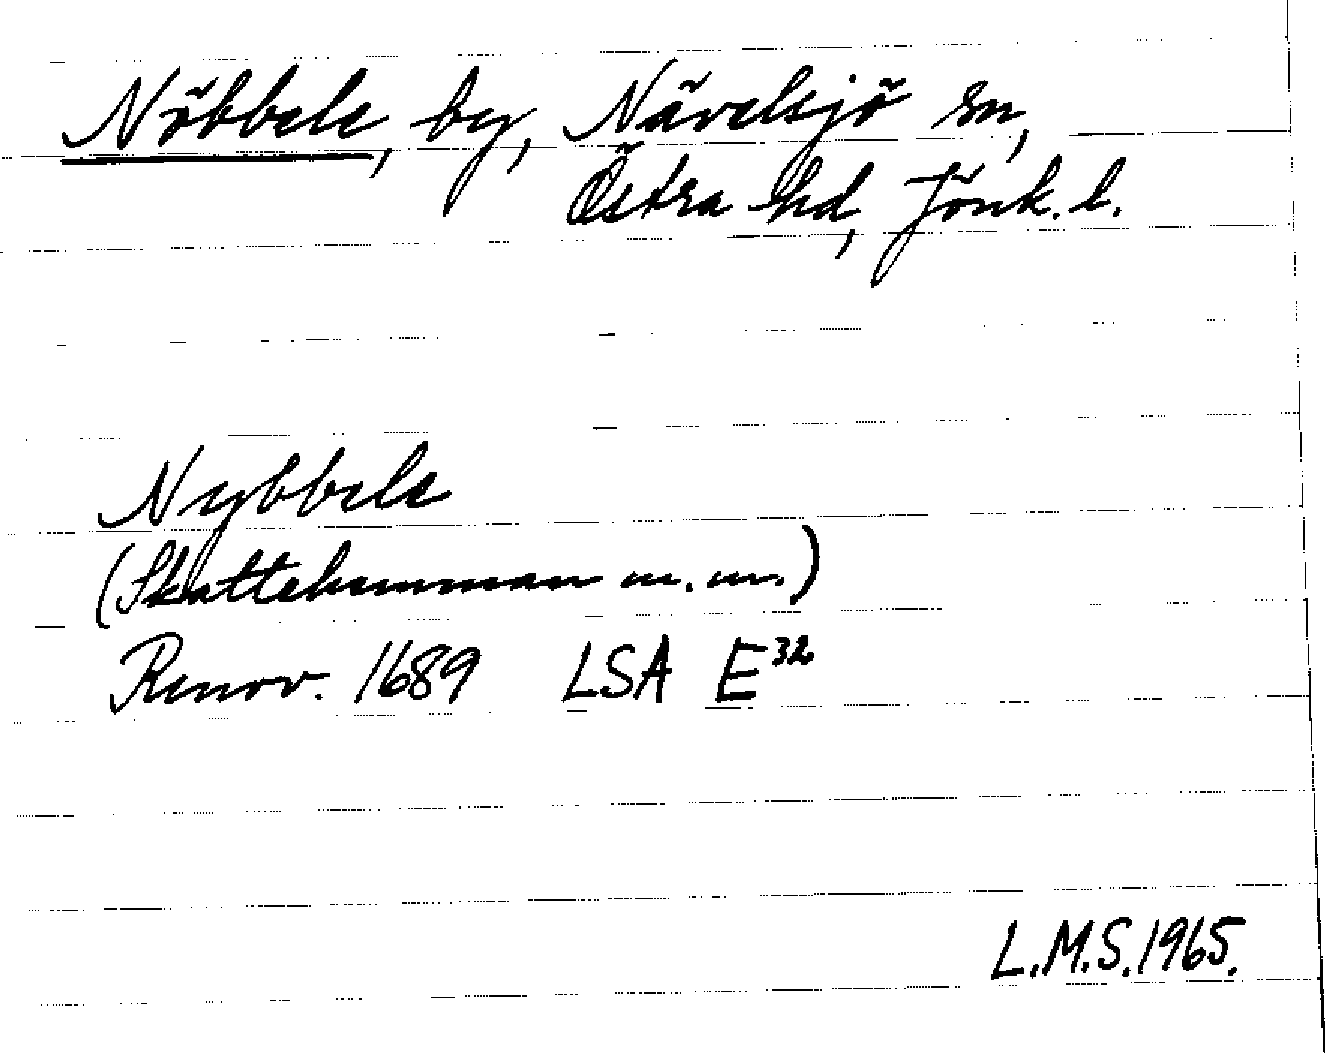 Nöbbele, by, Nävelsjö sn,
Östra hd, Jönk. l.
Nybbele
(Skattehemman m.m.)
Renov. 1689 LSA E32
L.M.S. 1965.